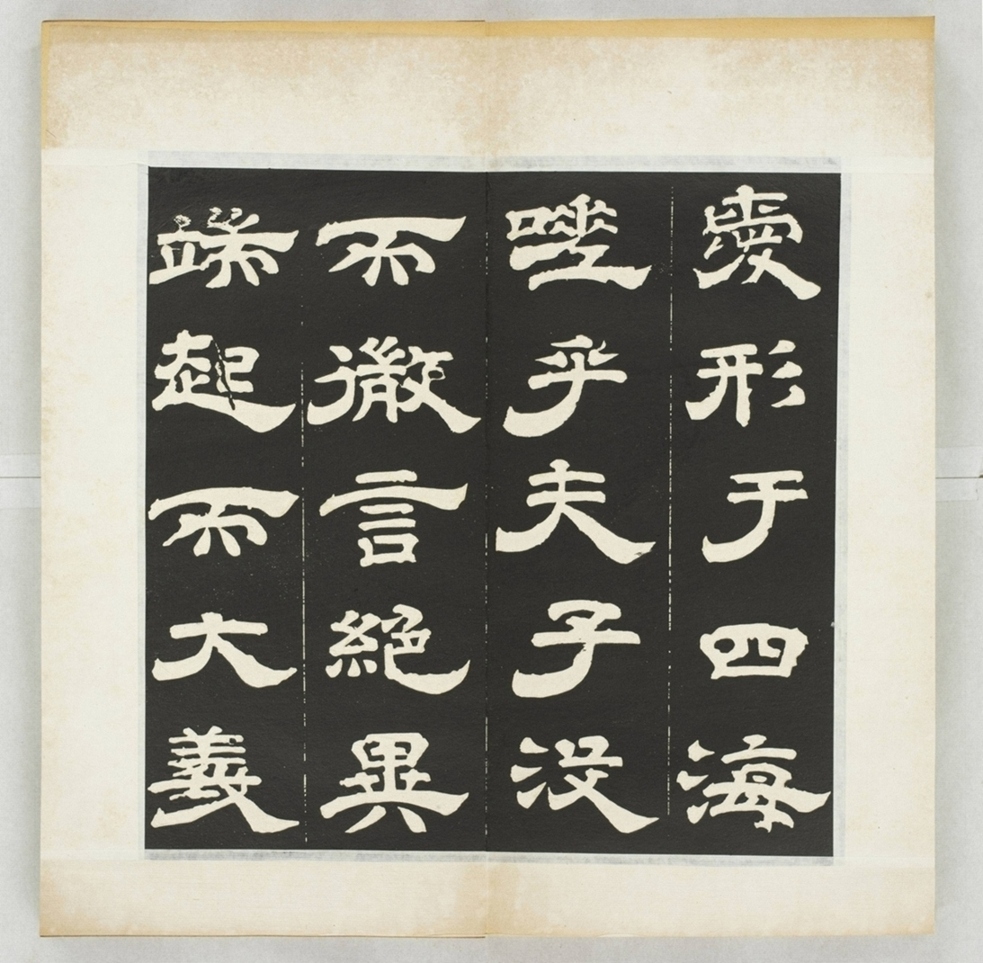 愛形于四海
嗟乎夫子没
而微言絕異
端起而大義